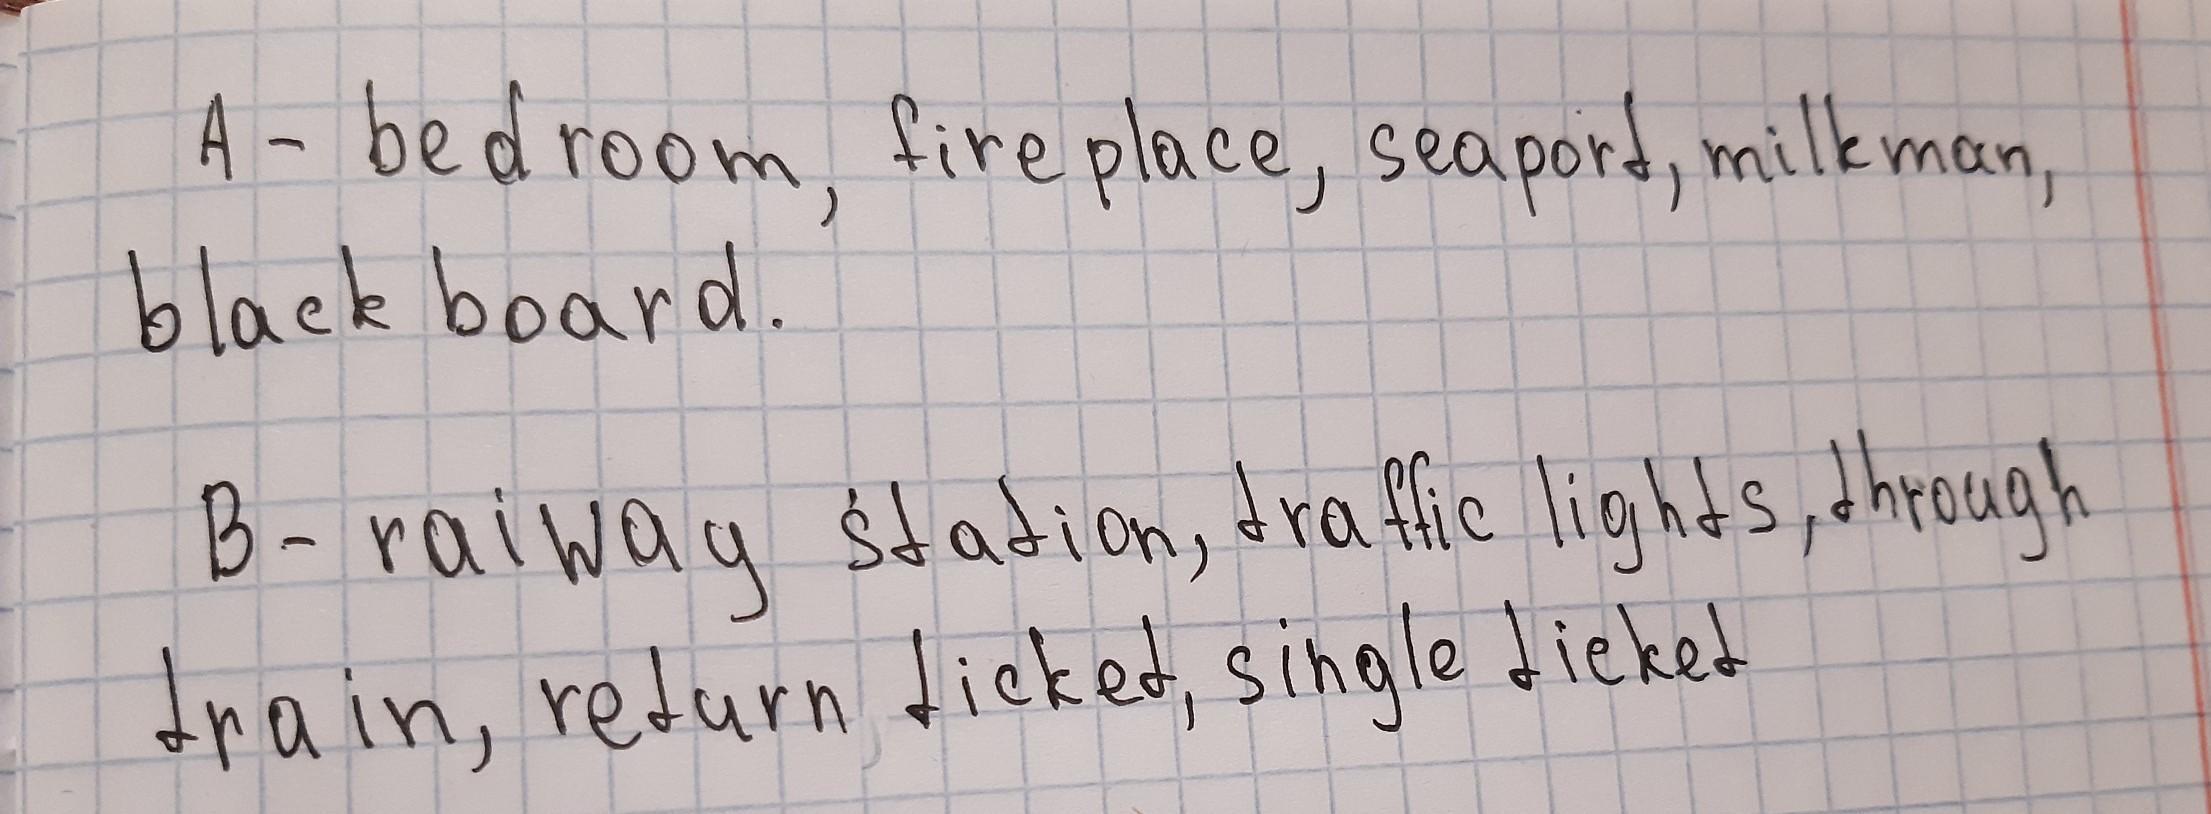 A - bedroom, fireplace, seaport, milkman,
blackboard.
B - raiway station, traffic lights, through
train, return ticket, single ticket